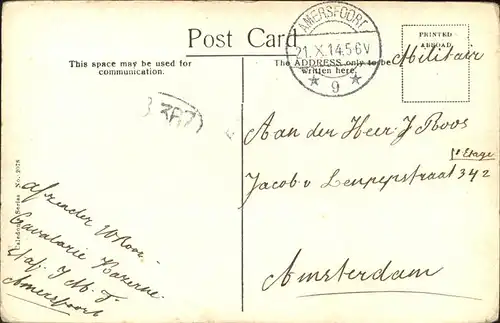 Post Card
This space may be used for
communication.
The ADDRESS only to be
written here.
PRINTED
ABROAD.
AMERSFOORT
21.X.14.5-6V
9
Militair
Aan der Heer J Roos
1e Etage
Jacob v Lennepstraat 342
Amsterdam
Afzender W Roos
Cavalarie Kazerne
Amersfoort
Series No. 2078